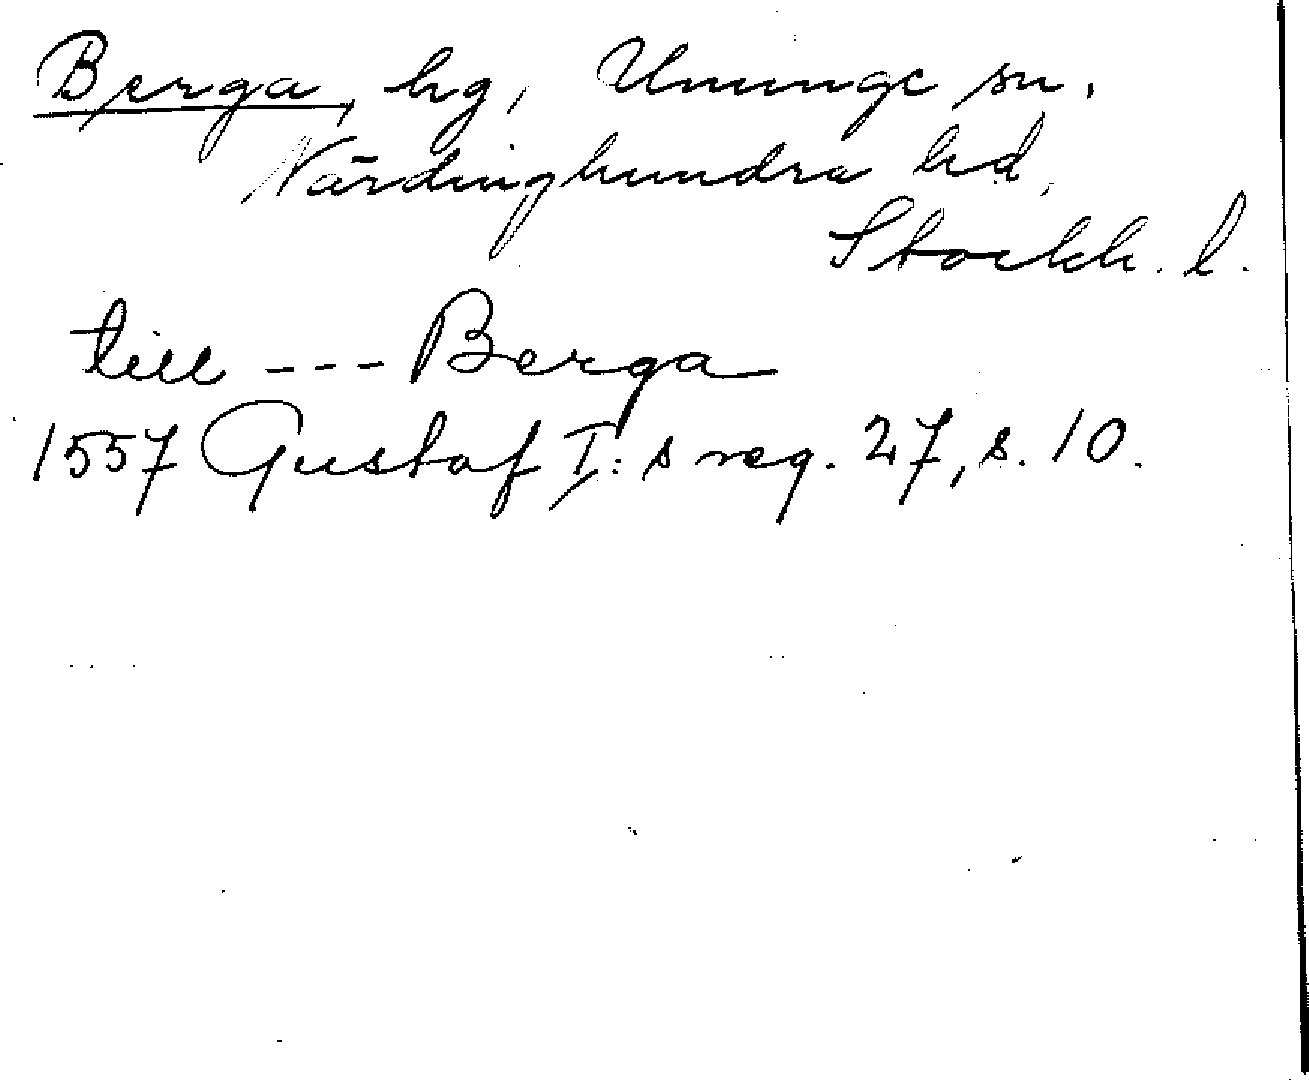 Berga, hg, Ununge sn.
Närdinghundra hd,
Stockh. l.
till --- Berga
1557 Gustaf I:s reg. 27, s. 10.